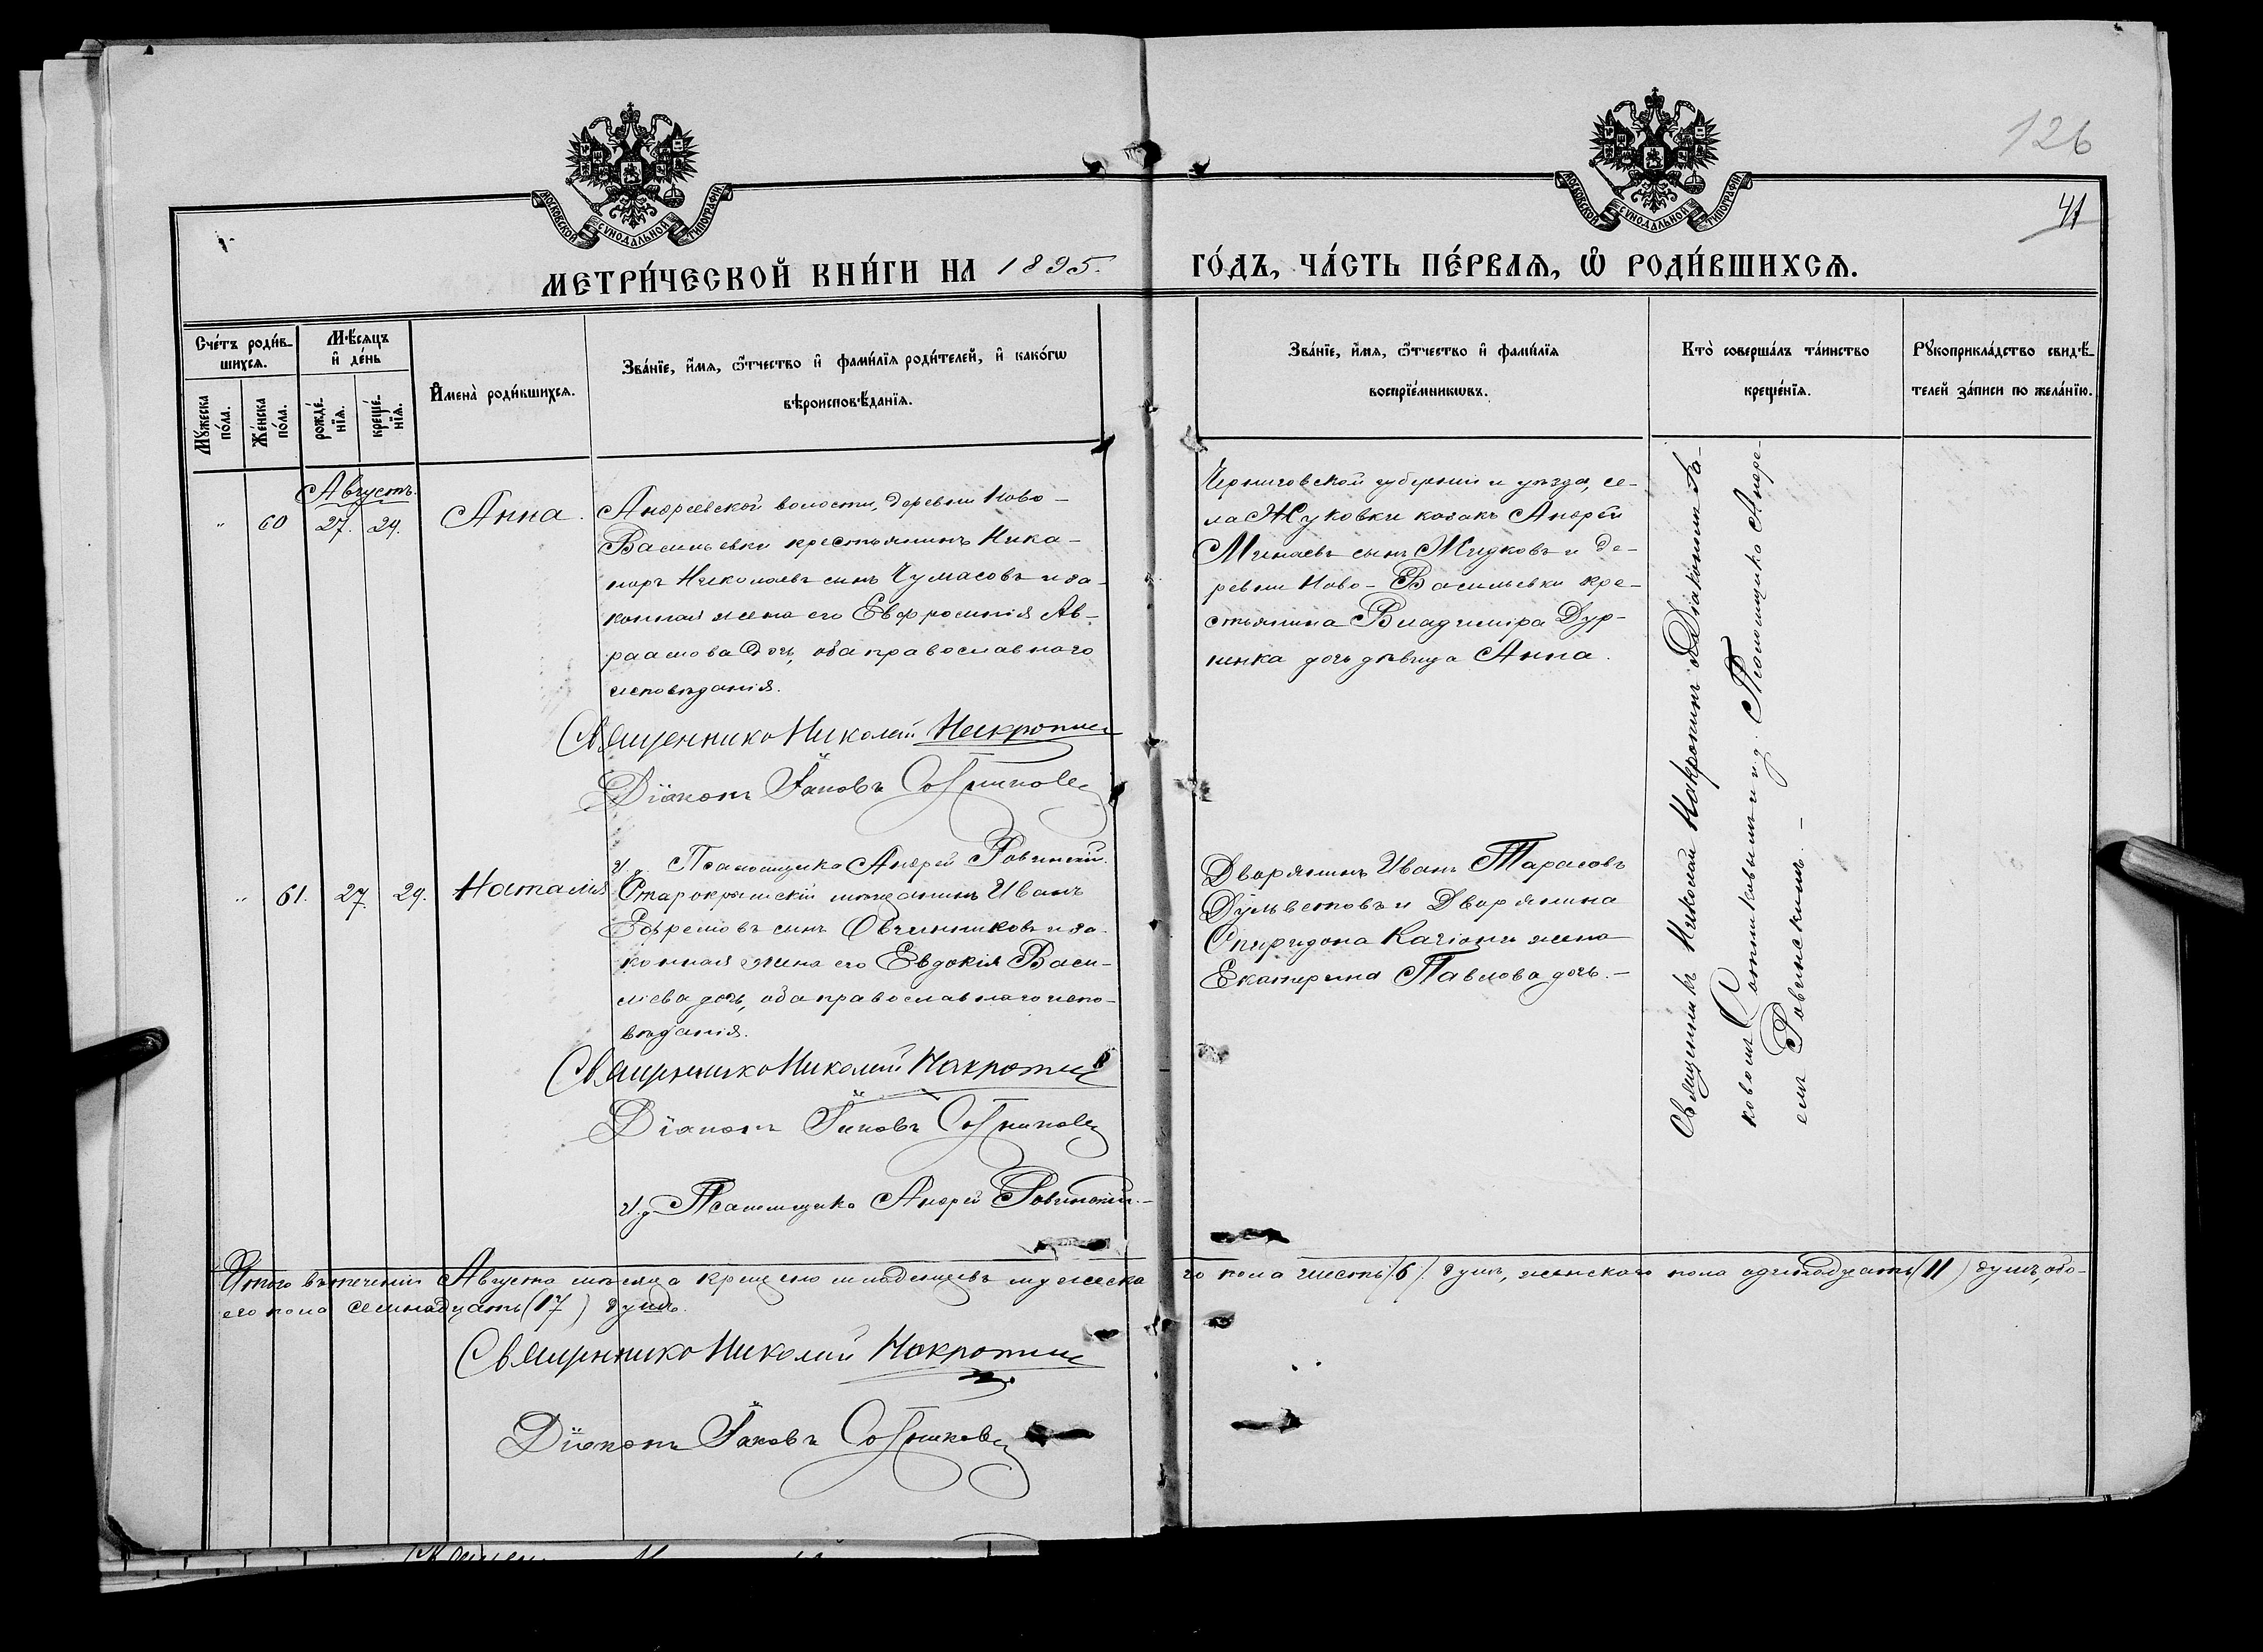 126
41
МОСКОВСКОЙ СѴНОДАЛЬНОЙ ТИПОГРАФІИ
МОСКОВСКОЙ СѴНОДАЛЬНОЙ ТИПОГРАФІИ
МЕТРИ́ЧЕСКОЙ КНИ́ГИ НА 1895. ГО́ДЪ, ЧА́СТЬ ПЕ́РВАѦ, Ѡ РОДИ́ВШИХСѦ.
Сче́тъ роди́в-
шихсѧ.
Мꙋ́жеска по́ла.
Же́нска по́ла.
Мѣ́сѧцъ и де́нь
рожде́нїѧ.
креще́нїѧ.
Имена̀ роди́вшихсѧ.
Зва́нїе, и́мѧ, ѻ́тчество и фами́лїѧ роди́телей, и како́гѡ
вѣроисповѣ́данїѧ.
Зва́нїе, и́мѧ, ѻ́тчество и фами́лїѧ
воспрїе́мникѡвъ.
Кто̀ соверша́лъ та́инство
креще́нїѧ.
Рꙋкоприкла́дство свидѣ́-
телей за́писи по жела́нїю.
Августъ.
" 60 27. 29. Анна.
Андреевской волости, деревни Ново-
Васильевки крестьянинъ Ника-
норъ Николаевъ сынъ Чумасовъ и за-
конная жена его Евфросинія Ав-
раамова дочь, оба православнаго
исповѣданія.
Священникъ Николай
Діаконъ Іаковъ Сотниковъ
И. д. Псаломщика Андрей Ровинскій.
Черниговской губерніи и уѣзда, се-
ла Жуковки козакъ Андрей
Минаевъ сынъ Жидковъ и де-
ревни Ново-Васильевки кре-
стьянина Владиміра Дур-
ннка дочь дѣвица Анна.
Священникъ Николай Накропинъ съ Діакономъ Іа-
ковомъ Сотниковымъ и и. д. Псаломщика Андре-
емъ Ровинскимъ.—
" 61. 27. 29. Наталія
Старокрымскій мѣщанинъ Иванъ
Ефремовъ сынъ Овчинниковъ и за-
конная жена его Евдокія Васи-
лiева дочь, оба православнаго испо-
вѣданія.
Священникъ Николай
Діаконъ Іаковъ Сотниковъ
И. д. Псаломщика Андрей Ровинскій.—
Дворянинъ Иванъ Тарасовъ
и Дворянина
Спиридона Качіони жена
Екатерина Павлова дочь.—
Итого въ теченіи Августа мѣсяца крещено младенцевъ мужеска го пола шесть (6) душъ, женскаго пола одинадцать (11) душъ, обо-
его пола семнадцать (17) душъ.
Священникъ Николай
Діаконъ Іаковъ Сотниковъ